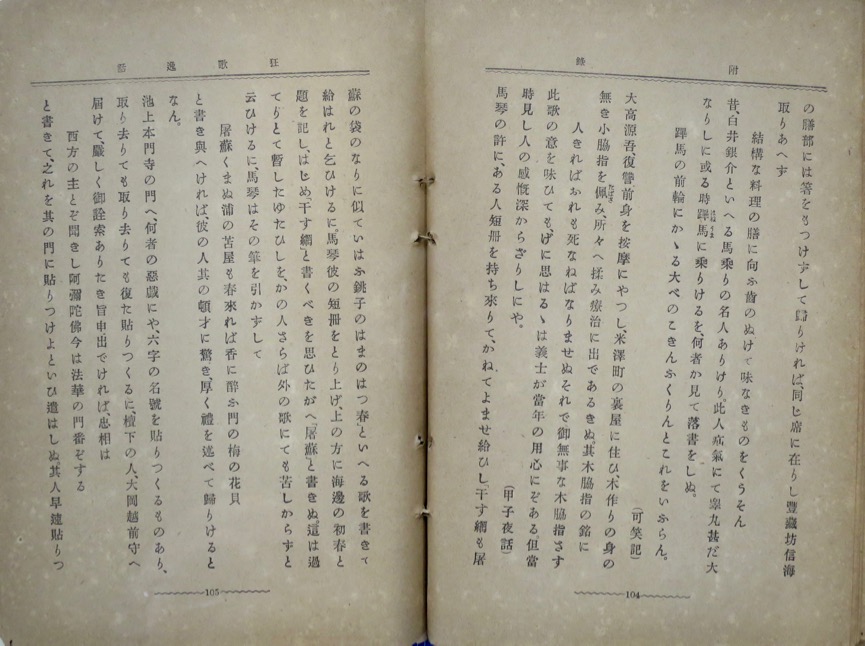 附錄
の膳部には箸をもつけずして歸りければ、同じ席に在りし豐藏坊信海
取りあへず
結構な料理の膳に向ふ齒のぬけて味なきものをくうそん
昔、白井銀介といへる馬乘りの名人ありけり。此人疝氣にて睾九甚だ大
なりしに或る時蹕馬に乘りけるを、何者か見て落書をしぬ。
蹕馬の前輪にかゝる大べのこきんふくりんとこれをいふらん。
(可笑記)
大高源吾、復讐前身を按摩にやつし、米澤町の裏屋に住ひ、木作りの身の
無き小脇指を佩み、所々へ揉み療治に出であるきぬ。其木脇指の銘に
人きればおれも死なねばなりませぬそれで御無事な木脇指さす
此歌の意を味ひても、げに思はるゝは義士が當年の用心にぞある。但當
時見し人の感慨深からざりしにや。
(甲子夜話)
馬琴の許に、ある人短册を持ち來りて、かねてよませ給ひし、干す網も屠
104
狂歌逸話
蘇の袋のなりに似ていはふ銚子のはまのはつ春」といへる歌を書きて
給はれと乞ひけるに、馬琴彼の短册をとり上げ、上の方に海邊の初春と
題を記し、はじめ「干す網」と書くべきを思ひたがへ「屠蘇」と書きぬ。這は過
てりとて暫したゆたひしを、かの人さらば外の歌にても苦しからずと
云ひけるに、馬琴はその筆を引かずして
屠蘇くまぬ浦の苫屋も春來れば香に醉ふ門の梅の花貝
と書き與へければ、彼の人其の頓才に驚き、厚く禮を述べて歸りけると
なん。
池上本門寺の門へ、何者の惡戲にや、六字の名號を貼りつくるものあり、
取り去りても取り去りても復た貼りつくるに、檀下の人、大岡越前守へ
屆けて、嚴しく御詮索ありたき旨申出でければ、忠相は
西方の主とぞ聞きし阿彌陀佛今は法華の門番ぞする
と書きて、之れを其の門に貼りつけよといひ遣はしぬ。其人早速貼りつ
105